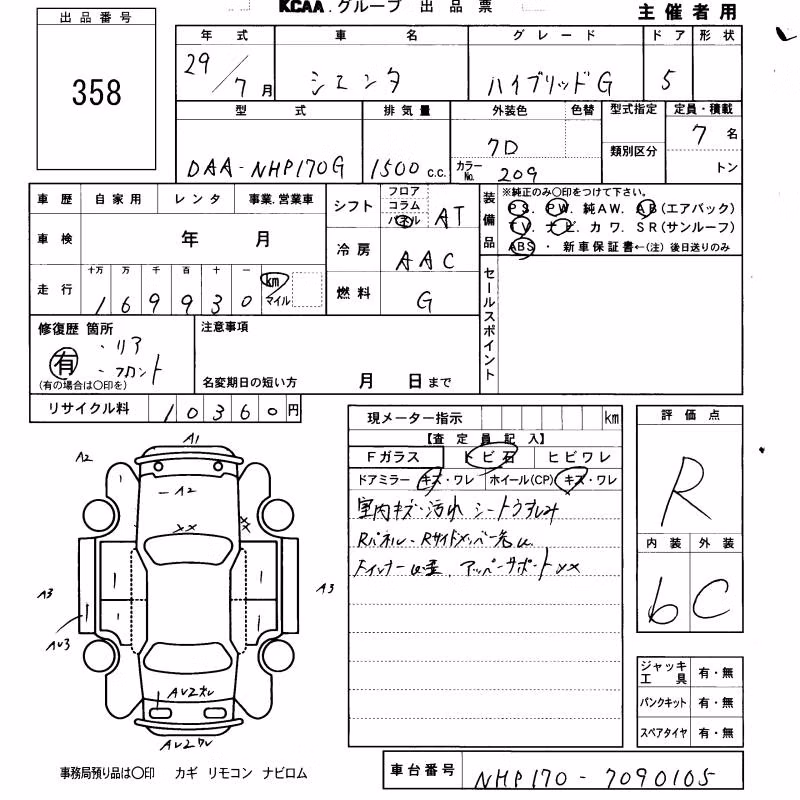 KCAA.グループ 出品票
主催者用
出品番号
358
年式 車名 グレード ドア 形状
29/7月 シエンタ ハイブリッドG 5
型式 排気量 外装色 色替 型式指定 定員・積載
DAA-NHP170G 1500c.c. 7D カラーNo. 209 類別区分 7名 トン
車歴 自家用 レンタ 事業.営業車
車検 年 月
走行 十万 万 千 百 十 一
169930 km マイル
シフト フロア コラム パネル AT
冷房 AAC
燃料 G
装備品 ※純正のみ〇印をつけて下さい。
PS. PW. 純AW. AB(エアバック)
TV. ナビ. カワ. SR(サンルーフ)
ABS ・ 新車保証書←(注) 後日送りのみ
セールスポイント
修復歴 箇所
有 ・リア
・フロント
(有の場合は〇印を)
注意事項
名変期日の短い方 月 日まで
リサイクル料 10360円
現メーター指示 km
【査定員記入】
Fガラス トビ石 ヒビワレ
ドアミラー キズ・ワレ ホイール(CP) キズ・ワレ
室内キズ・汚れ シートうすしみ
Rパネル・Rサイドメンバー
アッパーサポートXX
評価点
R
内装 外装
6 C
A1
A2
A2
XX
A3
A3
AV3
AV2
AV2ワレ
ジャッキ工具 有・無
パンクキット 有・無
スペアタイヤ 有・無
事務局預り品は〇印 カギ リモコン ナビロム
車台番号 NHP170-7090105